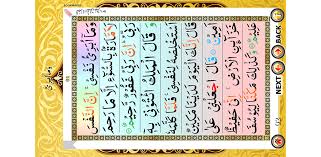 وَمَآ اُبَرِّئُ
وَمَآ اُبَرِّئُ نَفْسِیْ ۚ اِنَّ النَّفْسَ
لَاَمَّارَةٌۢ بِالسُّوْٓءِ اِلَّا مَا رَحِمَ
رَبِّیْ ؕ اِنَّ رَبِّیْ غَفُوْرٌ رَّحِیْمٌ
وَقَالَ الْمَلِكُ ائْتُوْنِیْ بِهٖۤ
اَسْتَخْلِصْهُ لِنَفْسِیْ ۚ فَلَمَّا كَلَّمَهٗ
قَالَ اِنَّكَ الْیَوْمَ لَدَیْنَا مَكِیْنٌ
اَمِیْنٌ قَالَ اجْعَلْنِیْ عَلٰی
خَزَآئِنِ الْاَرْضِ ۚ اِنِّیْ حَفِیْظٌ
عَلِیْمٌ وَكَذٰلِكَ مَكَّنَّا لِیُوْسُفَ
NEXT
BACK